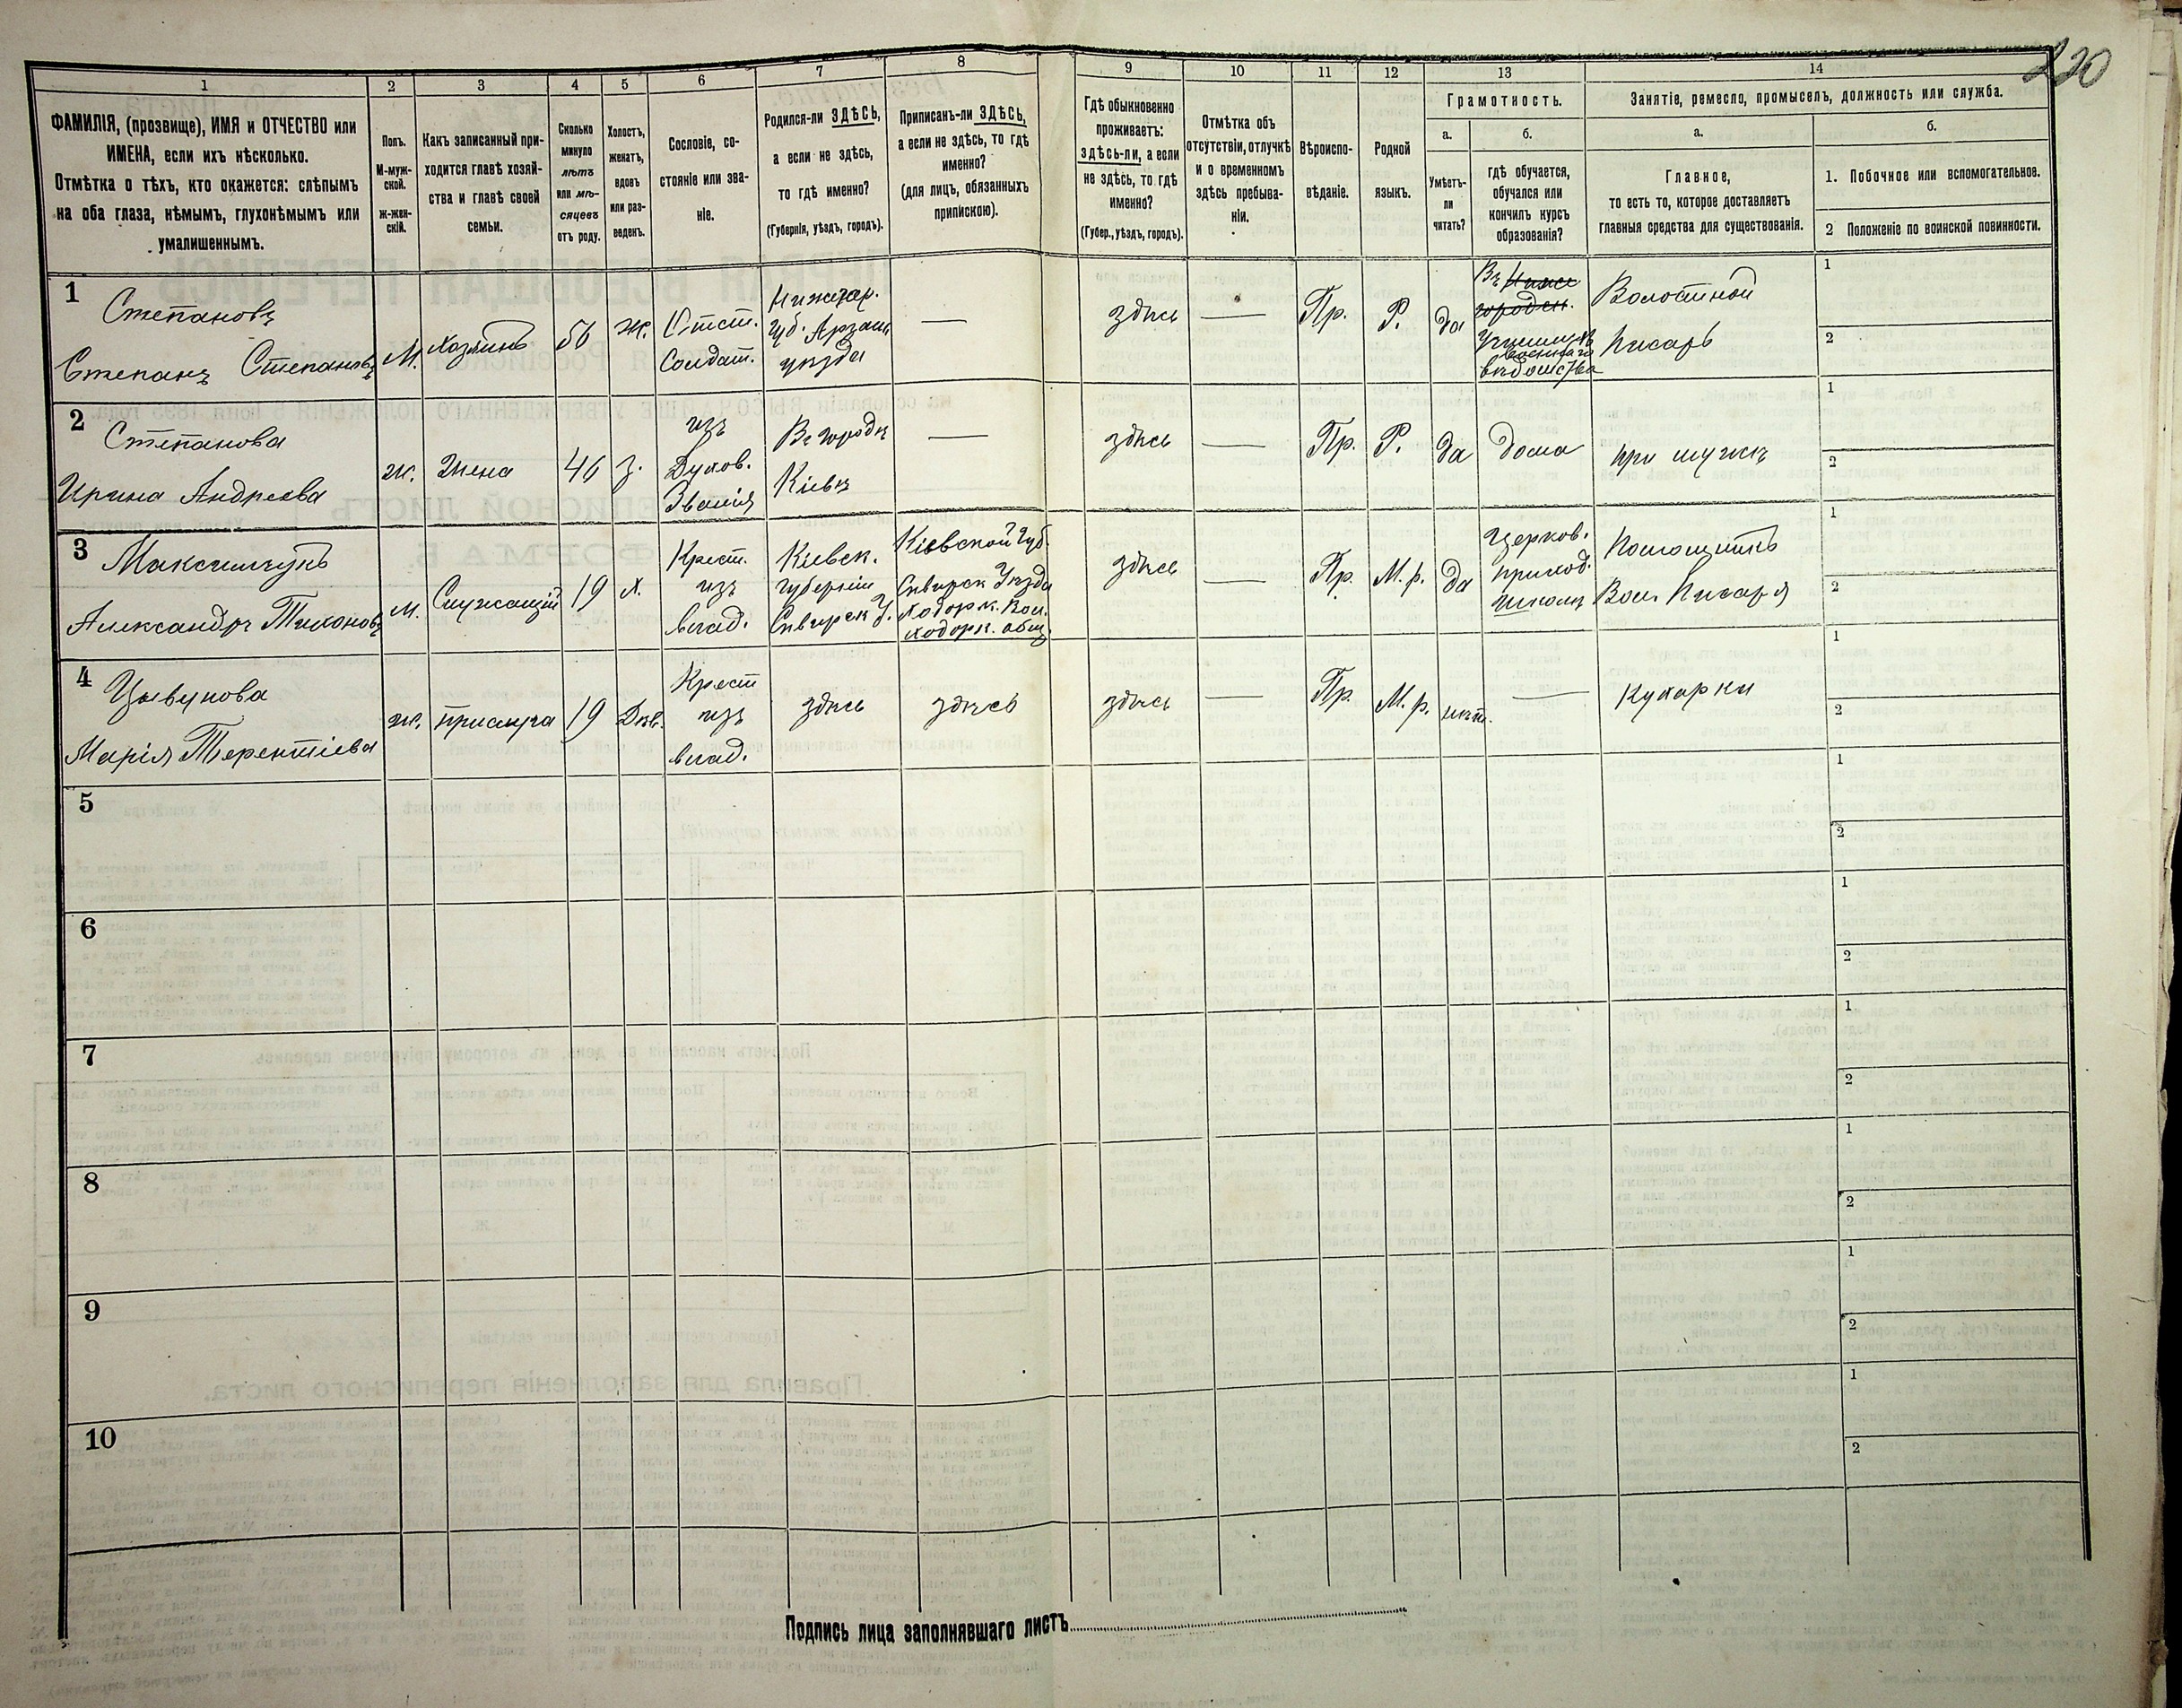 220
1 2 3 4 5 6 7 8 9 10 11 12 13 14
ФАМИЛІЯ, (прозвище), ИМЯ и ОТЧЕСТВО или
ИМЕНА, если ихъ нѣсколько.
Отмѣтка о тѣхъ, кто окажется: слѣпымъ
на оба глаза, нѣмымъ, глухонѣмымъ или
умалишеннымъ.
Полъ.
М-муж-
ской.
ж-жен-
скій.
Какъ записанный при-
ходится главѣ хозяй-
ства и главѣ своей
семьи.
Сколько
минуло
лѣтъ
или мѣ-
сяцевъ
отъ роду.
Холостъ,
женатъ,
вдовъ
или раз-
веденъ.
Сословіе, со-
стояніе или зва-
ніе.
Родился-ли ЗДѢСЬ,
а если не здѣсь,
то гдѣ именно?
(Губернія, уѣздъ, городъ).
Приписанъ-ли ЗДѢСЬ,
а если не здѣсь, то гдѣ
именно?
(для лицъ, обязанныхъ
припискою).
Гдѣ обыкновенно
проживаетъ:
здѣсь-ли, а если
не здѣсь, то гдѣ
именно?
(Губер., уѣздъ, городъ).
Отмѣтка объ
отсутствіи, отлучкѣ
и о временномъ
здѣсь пребыва-
ніи.
Вѣроиспо-
вѣданіе.
Родной
языкъ.
Грамотность.
а.
Умѣетъ-
ли
читать?
б.
гдѣ обучается,
обучался или
кончилъ курсъ
образованія?
Занятіе, ремесло, промыселъ, должность или служба.
а.
Главное,
то есть то, которое доставляетъ
главныя средства для существованія.
б.
1. Побочное или вспомогательное.
2 Положеніе по воинской повинности.
1
Степановъ
Степанъ Степановъ
М.
Хозяинъ
56
ж.
Отст.
Солдат.
Нижегор.
губ. Арзам.
уѣзда
—
здѣсь
—
Пр.
Р.
да
Въ Ниже
городск.
Училищѣ
военнаго
вѣдомства
Волостной
Писарь
1
2
2
Степанова
Ирина Андреева
ж.
Жена
46
з.
изъ
Духов.
Званія
Въ городѣ
Кіевѣ
—
здѣсь
—
Пр.
Р.
да
дома
при мужѣ
1
2
3
Максимчукъ
Александръ Тихоновъ
М.
Служащій
19
х.
Крест.
изъ
влад.
Кіевск.
губерніи
Сквирск У.
Кіевской Губ.
Сквирск Уѣзда
Ходорк. Вол.
Ходорк. общ.
здѣсь
—
Пр.
М. р.
да
Церков.
приход.
школѣ
Помощникъ
Вол. Писаря
1
2
4
Цывунова
Марія Терентіева
ж.
прислуга
19
Дѣв.
Крест
изъ
влад.
здѣсь
здѣсь
здѣсь
—
Пр.
М. р.
нѣт.
—
Кухарки
1
2
5
1
2
6
1
2
7
1
2
8
1
2
9
1
2
10
1
2
Подпись лица заполнявшаго листъ